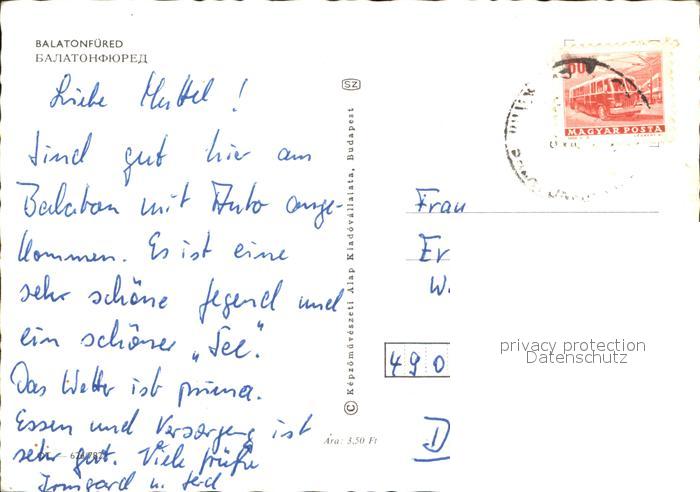 BALATONFÜRED
БАЛАТОНФЮРЕД
Liebe Muttel !
Sind gut hier am
Balaton mit Auto ange-
kommen. Es ist eine
sehr schöne Gegend und
ein schöner „See".
Das Wetter ist prima.
Essen und Versorgung ist
sehr gut. Viele Grüße
Irmgard u. Gerd
SZ
© Képzőművészeti Alap Kiadóvállalata, Budapest
Ára: 3,50 Ft
MAGYAR POSTA
Frau
Er
W.
490
D
privacy protection
Datenschutz